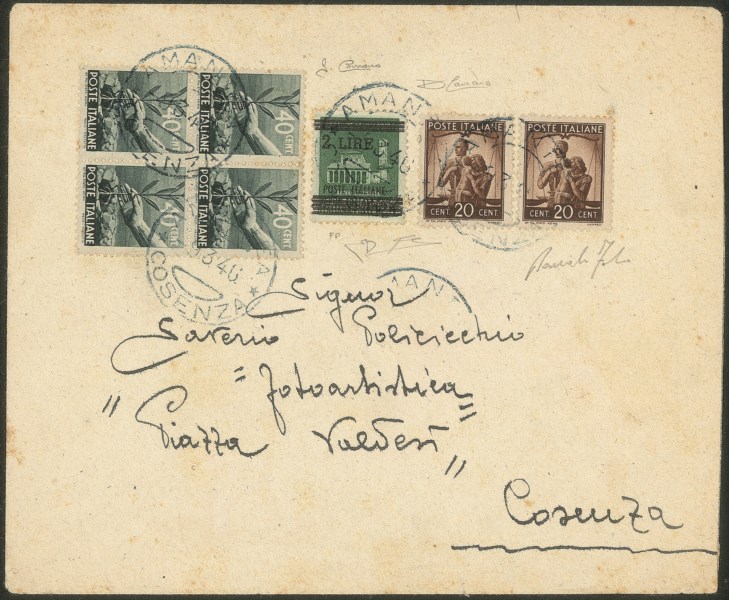 POSTE ITALIANE 40 CENT
POSTE ITALIANE 40 CENT
POSTE ITALIANE 40 CENT
POSTE ITALIANE 40 CENT
2 LIRE
POSTE ITALIANE
POSTE ITALIANE
CENT. 20 CENT
POSTE ITALIANE
CENT. 20 CENT
AMAN
COSENZA
AMAN
AMAN
FP
Signor
Saverio Policicchio
"Fotoartistica"
"Piazza Valdesi"
Cosenza